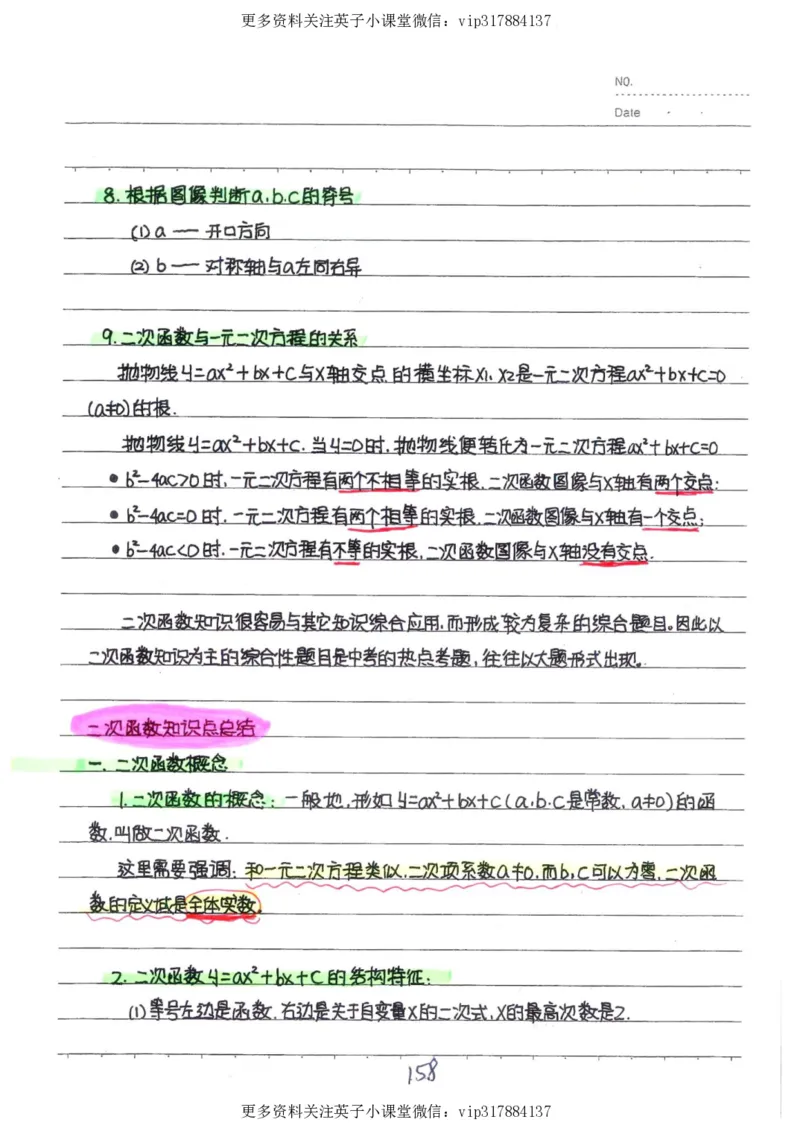 更多资料关注英子小课堂微信：vip317884137
NO.
Date
8.根据图像判断a,b.c的符号
(1) a — 开口方向
(2) b — 对称轴与a左同右异
9.二次函数与一元二次方程的关系
抛物线y=ax²+bx+c与x轴交点的横坐标x1,x2是一元二次方程ax²+bx+c=0
(a≠0)的根.
抛物线y=ax²+bx+c.当y=0时.抛物线便转化为一元二次方程ax²+bx+c=0
•b²-4ac>0时,一元二次方程有两个不相等的实根,二次函数图像与x轴有两个交点;
•b²-4ac=0时.一元二次方程有两个相等的实根,二次函数图像与x轴有一个交点;
•b²-4ac<0时.一元二次方程有不等的实根,二次函数图像与x轴没有交点.
二次函数知识很容易与其它知识综合应用,而形成较为复杂的综合题目。因此以
二次函数知识为主的综合性题目是中考的热点考题,往往以大题形式出现。
二次函数知识点总结
一.二次函数概念
1.二次函数的概念:一般地,形如y=ax²+bx+c(a,b.c是常数,a≠0)的函
数.叫做二次函数.
这里需要强调:和一元二次方程类似,二次项系数a≠0,而b,c可以为零.二次函
数的定义域是全体实数。
2.二次函数y=ax²+bx+c的结构特征:
(1)等号左边是函数,右边是关于自变量x的二次式,x的最高次数是2.
158
更多资料关注英子小课堂微信：vip317884137